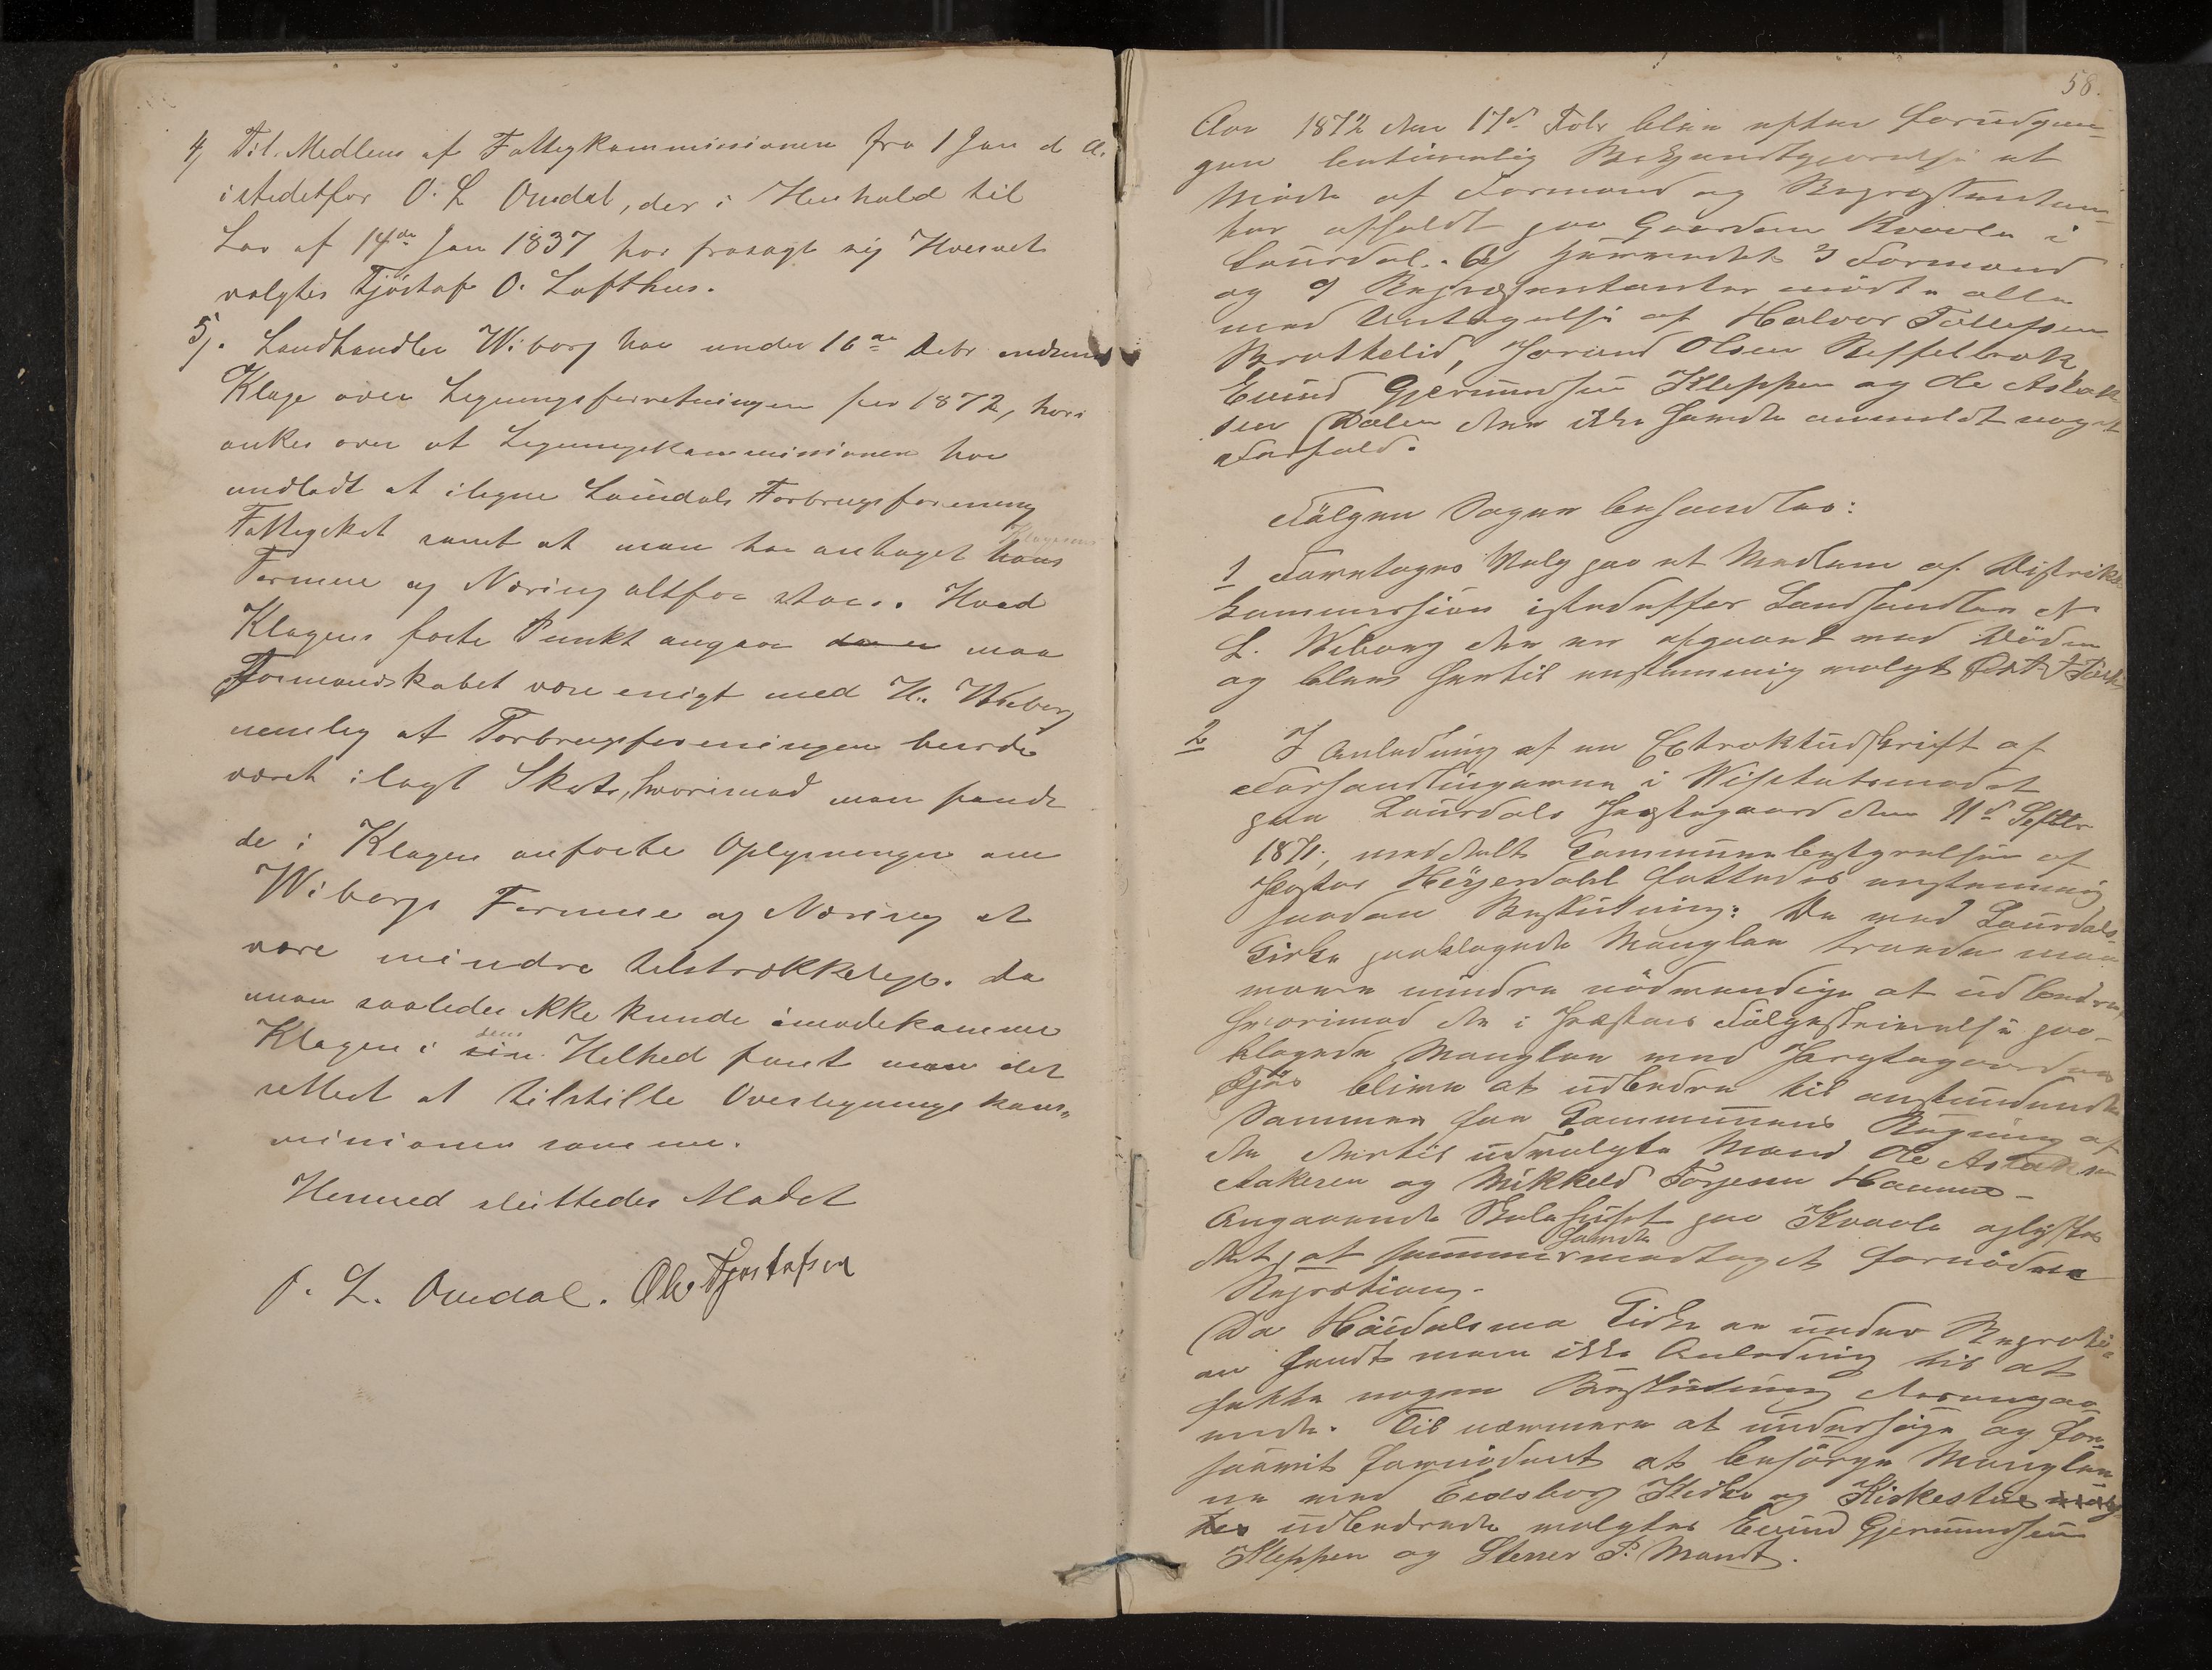 4, Til Medlem af Fattigkommissionen fra 1 Jan d A.
istedetfor O. L Omdal, der i Henhold til
Lov af 14de Jan 1837 har frasagt sig Hvervet
valgtes Tjöstaf O. Lofthus.
5,. Landhandler Wiborg har under 16de Debr indsendt
Klage over Ligningsforretningen for 1872, hvori
ankes over at Ligningskommissionen har
undladt at iligne Laurdals Forbrugsforening
Fattigskat samt at man har antaget hans Klagerens
Formue og Næring altfor stor. Hvad
Klagens förste Punkt angaar maa
Formandskabet være enigt med Hr. Wiborg
nemlig at Forbrugsforeningen burde
været ilagt Skat, hvorimod man fandt
de i Klagen anförte Oplysninger om
Wiborgs Formue og Næring at
være mindre tilstrækkelige. Da
man saaledes ikke kunde imödekomme
Klagen i sin dens Helhed fant man det
rettest at tilstille Overligningskom„
missionen samme.
Hermed sluttedes Mödet
O. L. Omdal. Ole Tjostafsen
58.
Aar 1872 den 17de Febr blev efter forudgan-
gen betimelig Bekjendtgjörelse et
Möde af Formænd og Repræsentan-
ter afholdt paa Gaarden Kvaale i
Laurdal. Af hervædt 3 Formænd
og 9 Repræsentanter mödte alle
med Undtagelse af Halvor Tollefsen
Brottelid, Jorand Olsen
Eivind Gjermundsen Kleppen og Ole Aslak
sen Dalen der ikke havde anmeldt noget
Forfald.
Fölgen Sager behandles:
1 Foretoges Valg paa et Medlem af Distrikts
kommission istedetfor Landhandler
L. Wiborg der er afgaaet ved Döden
og blev hertil enstemmig valgt
2 I Anledning af en Extraktudskrift af
Forhandlingerne i Visitatsmödet
paa Laurdals Præstegaard den 11te Septbr
1871, meddelt Kommunebestyrelsen af
Pastor Heyerdahl fattedes enstemmig
saadan Beslutning: De ved Laurdals
Kirke paaklagede Mangler troede man
være mindre nödvendige at udbedre,
hvorimod de i Præstens Fölgeskrivelse paa-
klagede Mangler ved Præstegaardens
Fjös bliver at udbedre til anstundende
Sommer for Kommunens Regning af
de dertil udvalgte Mænd Ole Aslaksen
Aakeren og Mikkeld Torjesen
Angaaende Skolehuset paa Kvaale oplystes
det, at samme havde modtaget fornöden
Repration.
Da Höidalsmo Kirke er under Reprati-
on fandt man ikke Anledning til at
fatte nogen Beslutning derangaa
ende. Til nærmere at undersöge og for-
saavit fornödent at besörge Mangler-
ne ved Eidsborg Kirke og Kirkestue
udbedrede valgtes Eivind Gjermundsen
Kleppen og Stener P. Mandt.